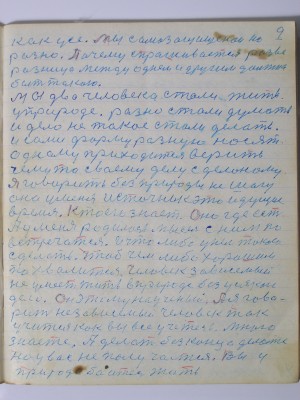 9
как все. Мы самозащищаемся но
разно. Почему спрашивается разве
разница между одним и другим должна
быть такою.
Мы два человека стали жить
у природе. разно стали думать
и дело не такое стали делать.
и сами форму разную носят.
Одному приходится верить
чему то своему делу сделанному
Я говорить без природы не могу
она у меня источник это идущее
время. Кто его знает. Оно где есть
Я у меня родилось я с ним по
встречатся. И что либо у нём такого
сделать. Чтоб чем либо хорошим
похвалится. Человек зависимый
не умеет жить в природе без усякого
дела. Он этому научený. А я гово-
рю независимый человек так
учится как вы все учитесь. Много
знаете. А делать без конца делаете
но у вас не получается. Вы у
природе боитесь жить